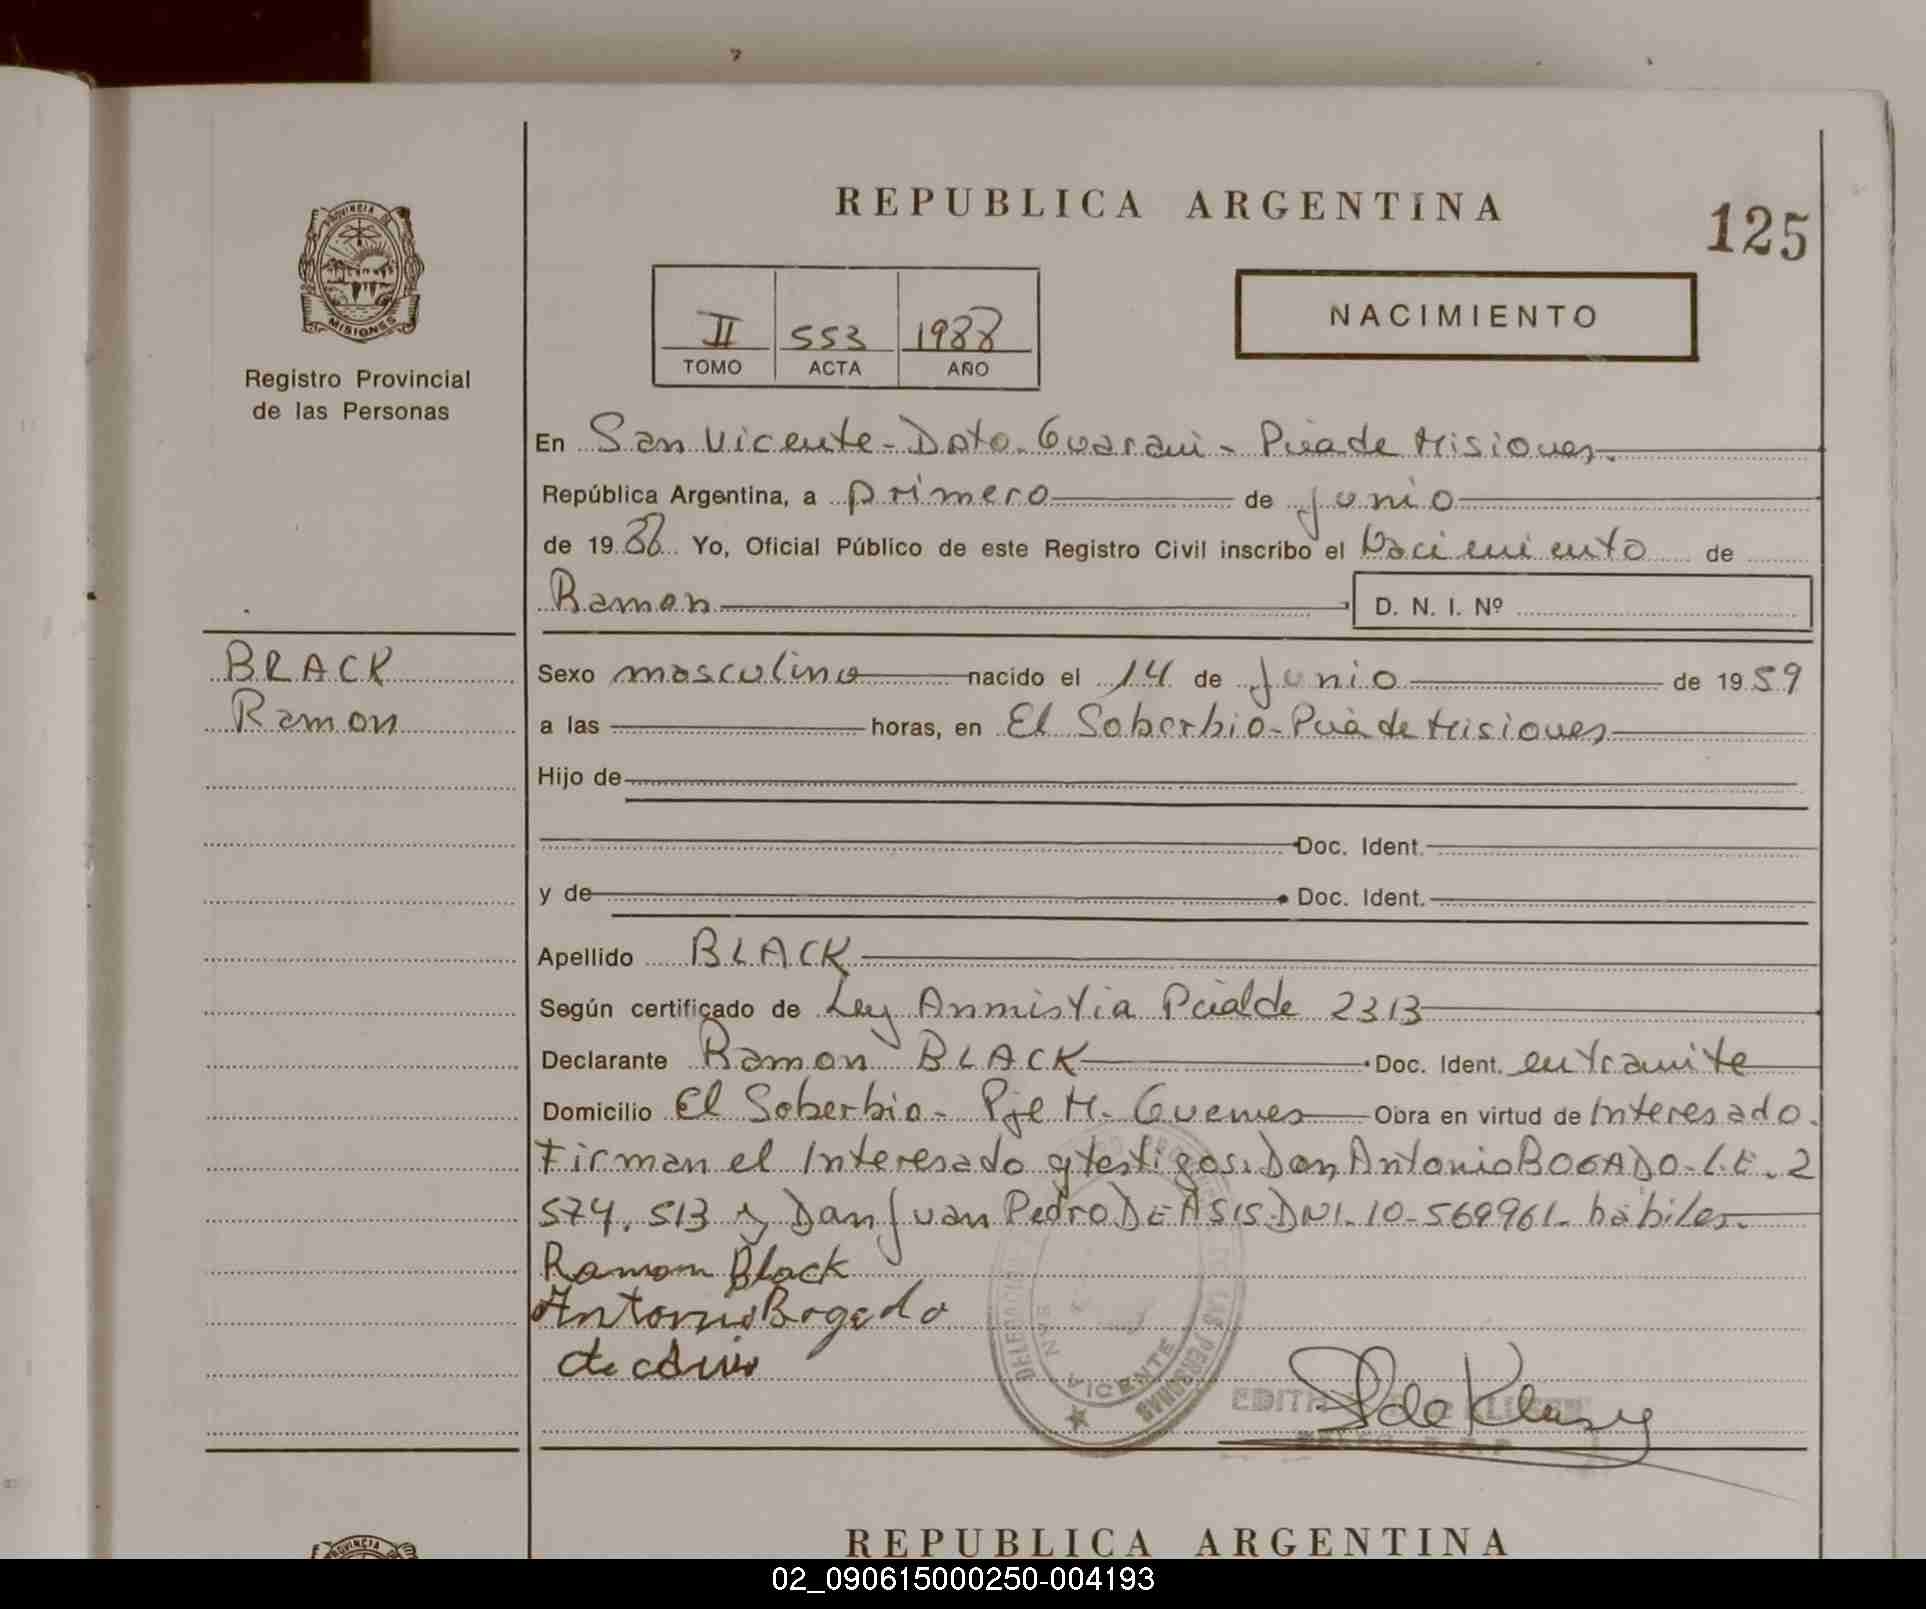 REPUBLICA ARGENTINA
125
PROVINCIA DE
MISIONES
Registro Provincial
de las Personas
II 553 1988
TOMO ACTA AÑO
NACIMIENTO
En San Vicente - Dpto. Guarani - Pcia de Misiones.
República Argentina, a primero de junio
de 1988 Yo, Oficial Público de este Registro Civil inscribo el Nacimiento de
Ramon D. N. I. Nº
BLACK
Ramon
Sexo masculino nacido el 14 de Junio de 1959
a las horas, en El Soberbio - Pcia de Misiones
Hijo de
Doc. Ident.
y de Doc. Ident.
Apellido BLACK
Según certificado de Ley Anmistia Pcial de 2313
Declarante Ramon BLACK Doc. Ident. en tramite
Domicilio El Soberbio - Pje M. Guemes Obra en virtud de Interesado.
Firman el Interesado y testigos. Don Antonio BOGADO - L.E. 2
574. 513 y Don Juan Pedro DE ASIS DNI. 10-569961. habiles.
Ramon Black
Antonio Bogado
VICENTE
LAS PERSONAS
EDITH
REPUBLICA ARGENTINA
PROVINCIA
02_090615000250-004193